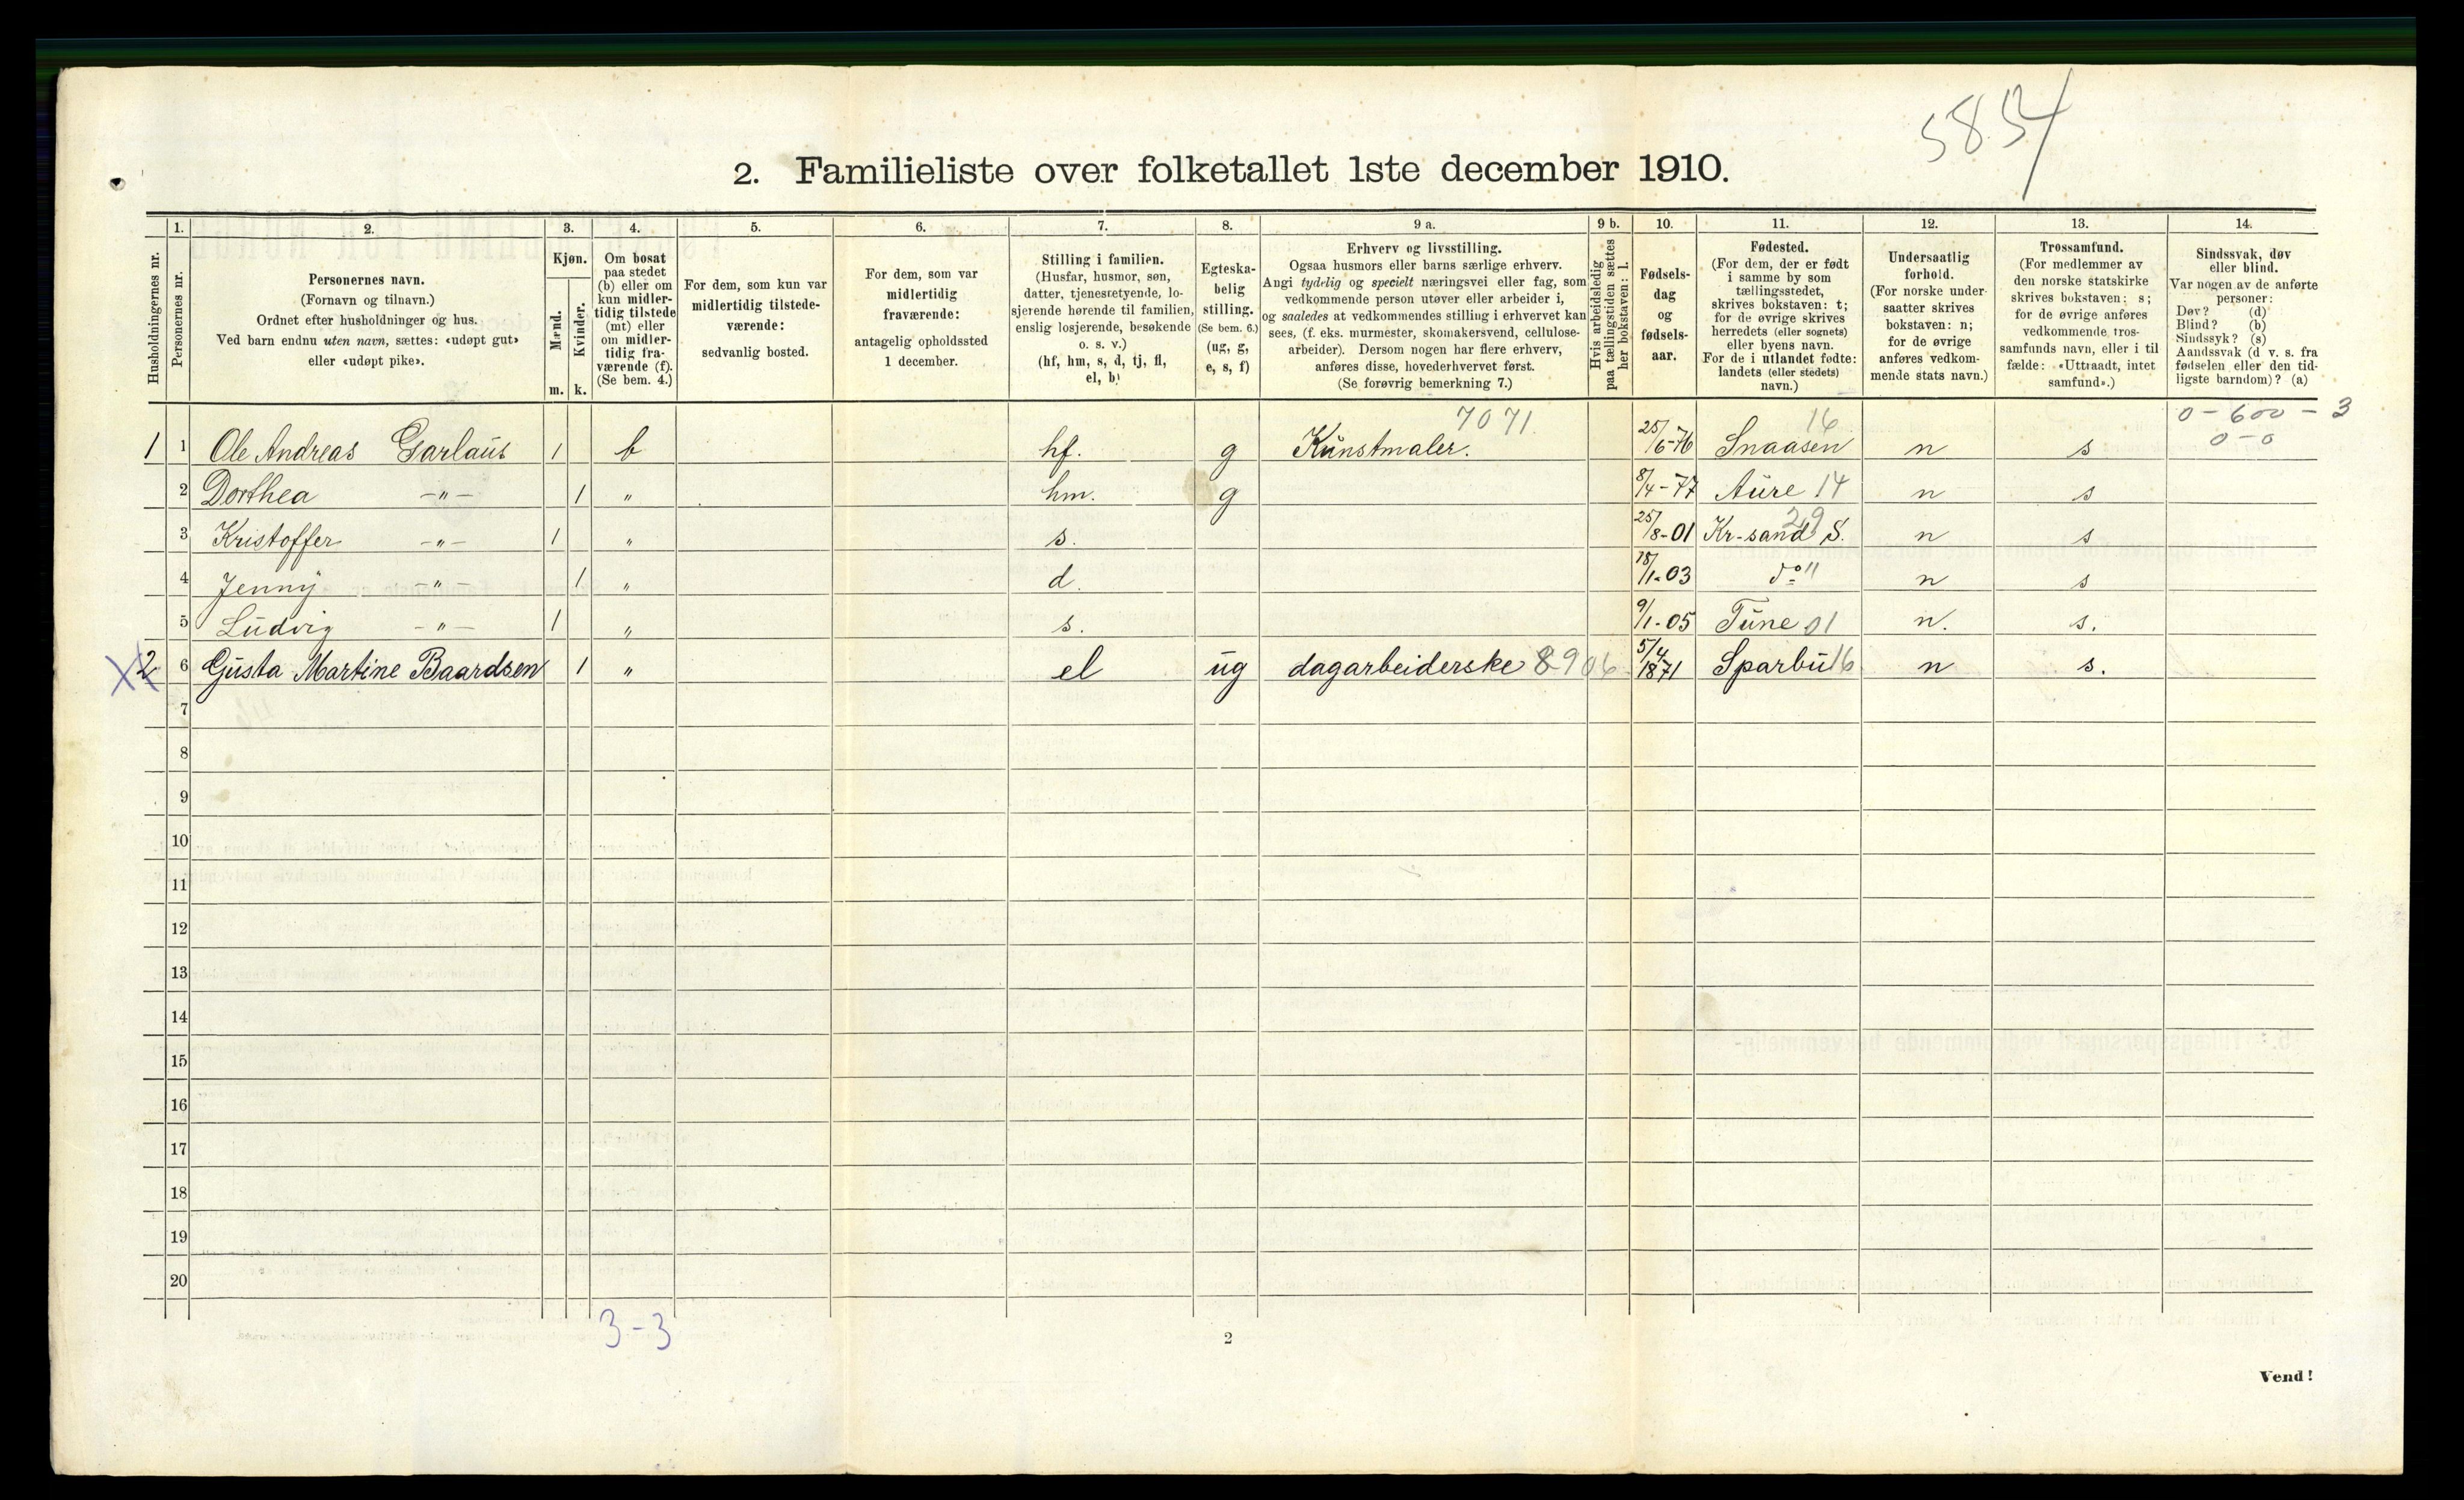 5834
2. Familieliste over folketallet 1ste december 1910.
Husholdningernes nr.
1.
Personernes nr.
2.
Personernes navn.
(Fornavn og tilnavn.)
Ordnet efter husholdninger og hus.
Ved barn endnu uten navn, sættes: «udøpt gut»
eller «udøpt pike».
3.
Kjøn.
Mænd.
Kvinder.
m. k.
4.
Om bosat
paa stedet
(b) eller om
kun midler-
tidig tilstede
(mt) eller
om midler-
tidig fra-
værende (f).
(Se bem. 4.)
5.
For dem, som kun var
midlertidig tilstede-
værende:
sedvanlig bosted.
6.
For dem, som var
midlertidig
fraværende:
antagelig opholdssted
1 december.
7.
Stilling i familien.
(Husfar, husmor, søn,
datter, tjenestetyende, lo-
sjerende hørende til familien,
enslig losjerende, besøkende
o. s. v.)
(hf, hm, s, d, tj, fl,
el, b)
8.
Egteska-
belig
stilling.
(Se bem. 6.)
(ug, g,
e, s, f)
9 a.
Erhverv og livsstilling.
Ogsaa husmors eller barns særlige erhverv.
Angi tydelig og specielt næringsvei eller fag, som
vedkommende person utøver eller arbeider i,
og saaledes at vedkommendes stilling i erhvervet kan
sees, (f. eks. murmester, skomakersvend, cellulose-
arbeider). Dersom nogen har flere erhverv,
anføres disse, hovederhvervet først.
(Se forøvrig bemerkning 7.)
9 b.
Hvis arbeidsledig
paa tællingstiden sættes
her bokstaven: l.
10.
Fødsels-
dag
og
fødsels-
aar.
11.
Fødested.
(For dem, der er født
i samme by som
tællingsstedet,
skrives bokstaven: t;
for de øvrige skrives
herredets (eller sognets)
eller byens navn.
For de i utlandet fødte:
landets (eller stedets)
navn.)
12.
Undersaatlig
forhold.
(For norske under-
saatter skrives
bokstaven: n;
for de øvrige
anføres vedkom-
mende stats navn.)
13.
Trossamfund.
(For medlemmer av
den norske statskirke
skrives bokstaven: s;
for de øvrige anføres
vedkommende tros-
samfunds navn, eller i til
fælde: «Uttraadt, intet
samfund».)
14.
Sindssvak, døv
eller blind.
Var nogen av de anførte
personer:
Døv? (d)
Blind? (b)
Sindssyk? (s)
Aandssvak (d v. s. fra
fødselen eller den tid-
ligste barndom)? (a)
7071 16 0-600-3
1 1 Ole Andreas Garlaus 1 b hf. g Kunstmaler. 25/6-76 Snaasen n s 0-0
2 Dorthea -"- 1 " hm. g 8/4-77 Aure 14 n s
3 Kristoffer -"- 1 " s. 25/8-01 Kr-sand S. 29 n s
4 Jenny -"- 1 " d. 18/1-03 do " n s
5 Ludvig -"- 1 " s. 9/1-05 Tune 01 n. s.
2 6 Gusta Martine Baardsen 1 " el ug dagarbeiderske 8906 5/4 1871 Sparbu 16 n s.
7
8
9
10
11
12
13
14
15
16
17
18
19
20
3-3
2
Vend!